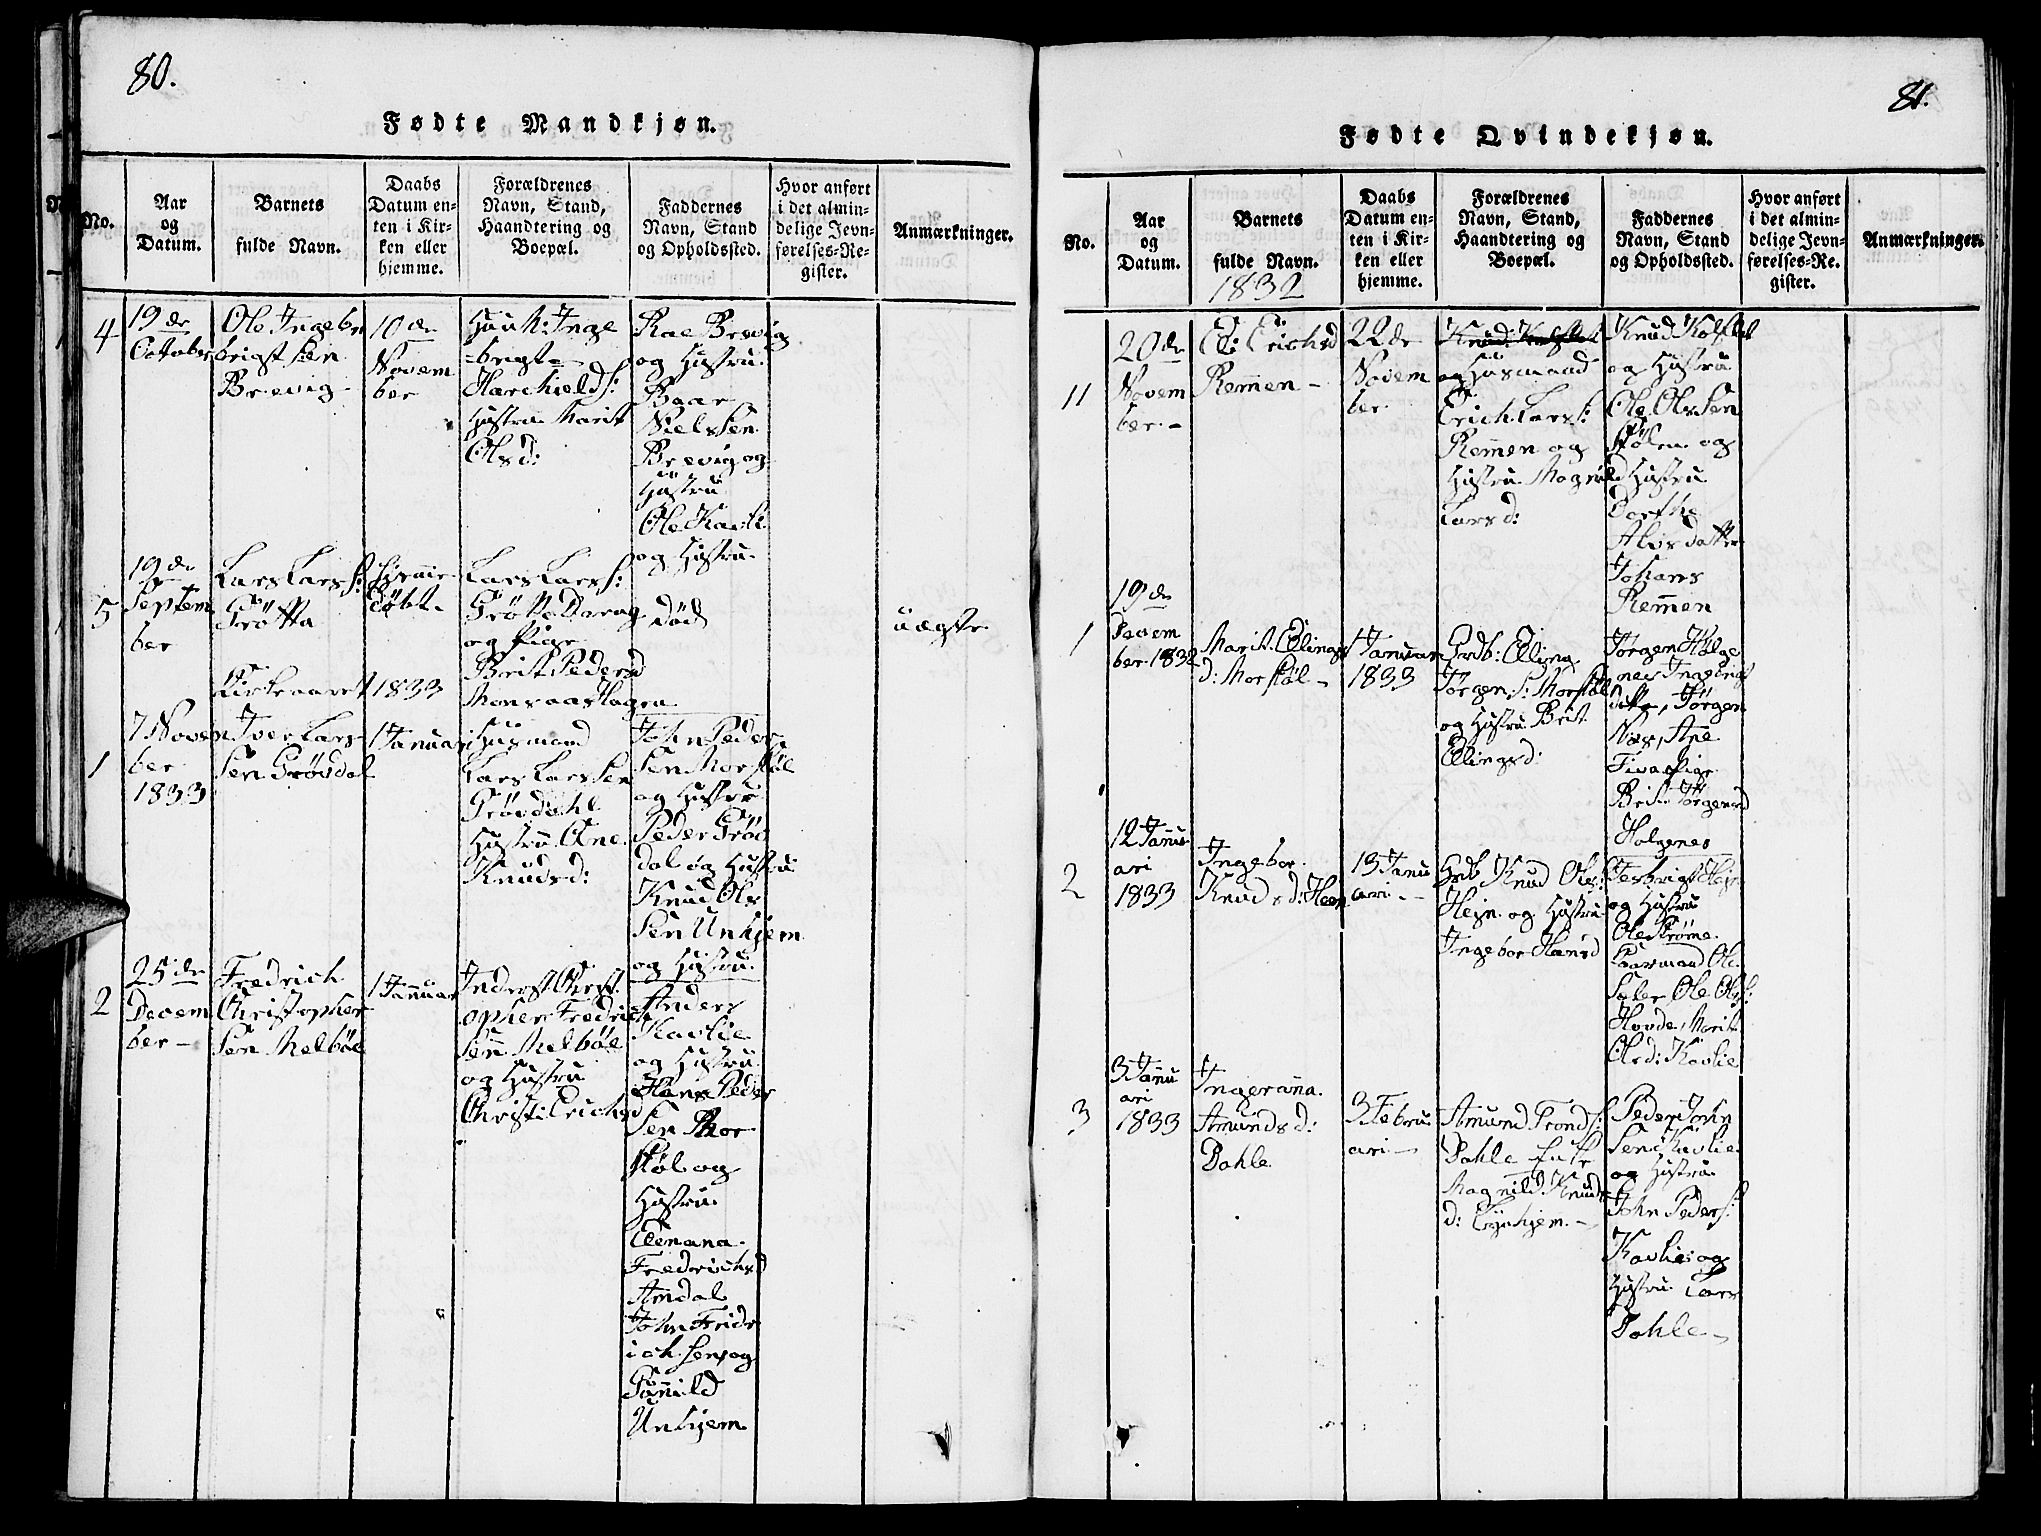 80.
Fødte Mandkjøn.
No.
Aar
og
Datum.
Barnets
fulde Navn.
Daabs
Datum en-
ten i Kir-
ken eller
hjemme.
Forældrenes
Navn, Stand,
Haandtering og
Boepæl.
Faddernes
Navn, Stand
og Opholdssted.
Hvor anført
i det almin-
delige Jevn-
førelses-Re-
gister.
Anmærkninger.
4
19de
October
Ole Ingebr
brigt sen
Brevig
10de
Novem
ber
Inge
=brigt
Hustru Marit
Olsd:
Brevig
og Hustru
Baar
Nielssen
Brevig og
Hustru
Ole Kavli
og Hustru
5
19de
Septem
ber
Lars Lars s:
Grötta
hjemme
döbt
Lars Lars s:
Grötta
og Pige
Brit Pedersd
död
uægte
Kirkeaaret 1833
1
7 Novem
ber
1833
Iver Lars
sen Grövdal
1 Januar
Husmand
Lars Larssen
Grövdahl
Hustru Ane
Knudsd:
John Peder
sen Morstöl
og Hustru
Peder Gröv
dal og Hustru
Knud Ols
sen Unhjem
og Hustru
2
25de
Decem
ber
Fredrich
Christopher
sen Melböe
1 Januar
Inderst Christ
opher Fredrich
sen Melböe
og Hustru
Christi Erichsd
Anders
Kavlie
og Hustru
Hans Peder
sen Mor
stöl og
Hustru
Elenana
Fredrichsd
Amdal
John Fridr
ich sen og
Gunild
Unhjem
81.
Fødte Qvindekjøn.
No.
Aar
og
Datum.
Barnets
fulde Navn.
1832
Daabs
Datum en-
ten i Kir-
ken eller
hjemme.
Forældrenes
Navn, Stand,
Haandtering og
Boepæl.
Faddernes
Navn, Stand
og Opholdssted.
Hvor anført
i det almin-
delige Jevn-
førelses-Re-
gister.
Anmærkninger.
11
20de
Novem
ber
Eli Erichsd
Remmen
22de
Novem
ber
Knud
og Husmand
Erich Lars s:
Remmen og
Hustru Magnild
Larsd:
Knud Kolflot
og Hustru
Ole Olssen
Stölen og
Hustru
Dorthe
datter
Johans
Remmen
1
19de
Decem
ber 1832
Marit Ellings
d: Morstöl
1 Januar
1833
Grdb: Elling
Jörgen s: Morstöl
og Hustru Brit
Ellingsd:
Jörgen Holge
nes
Jörgen
Næs, Ane
Fiva Pige
Brit Jörgensd
Holgenes
2
12 Janu
ari
1833
Ingebor
Knudsd: Heen
13 Janu
ari
Grdb Knud Ols:
Hejn og Hustru
Ingebor Hansd
og Hustru
Ole Ströme
Ole
Sæter Ole Ols:
Hovde, Marit
Olsd: Kavlie
3
3 Janu
ari
1833
Ingeranna
Amunds d:
Dahle
3 Februs
ari
Amund Trond s:
Dahle
Magnild Knuds
d:
Peder John
sen Kavlie
og Hustru
John Peders:
Kavlie og
Hustru Lars
Dahle